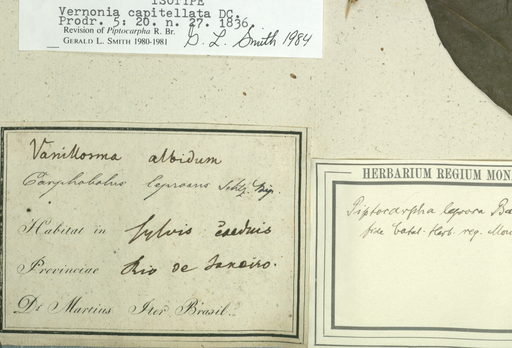 ISOTIPE
Vernonia capitellata DC.
Prodr. 5: 20. n. 27. 1836.
Revision of Piptocarpha R. Br.
GERALD L. SMITH 1980-1981
G. L. Smith 1984
Vanillosma albidum
Carphobolus leprosus Schtz. Bip.
Habitat in sylvis caeduis
Provinciae Rio de Janeiro.
Dr Martius Iter Brasil.
HERBARIUM REGIUM MON
Piptocarpha leprosa Ba
fide Catal. Herb. reg. Mon